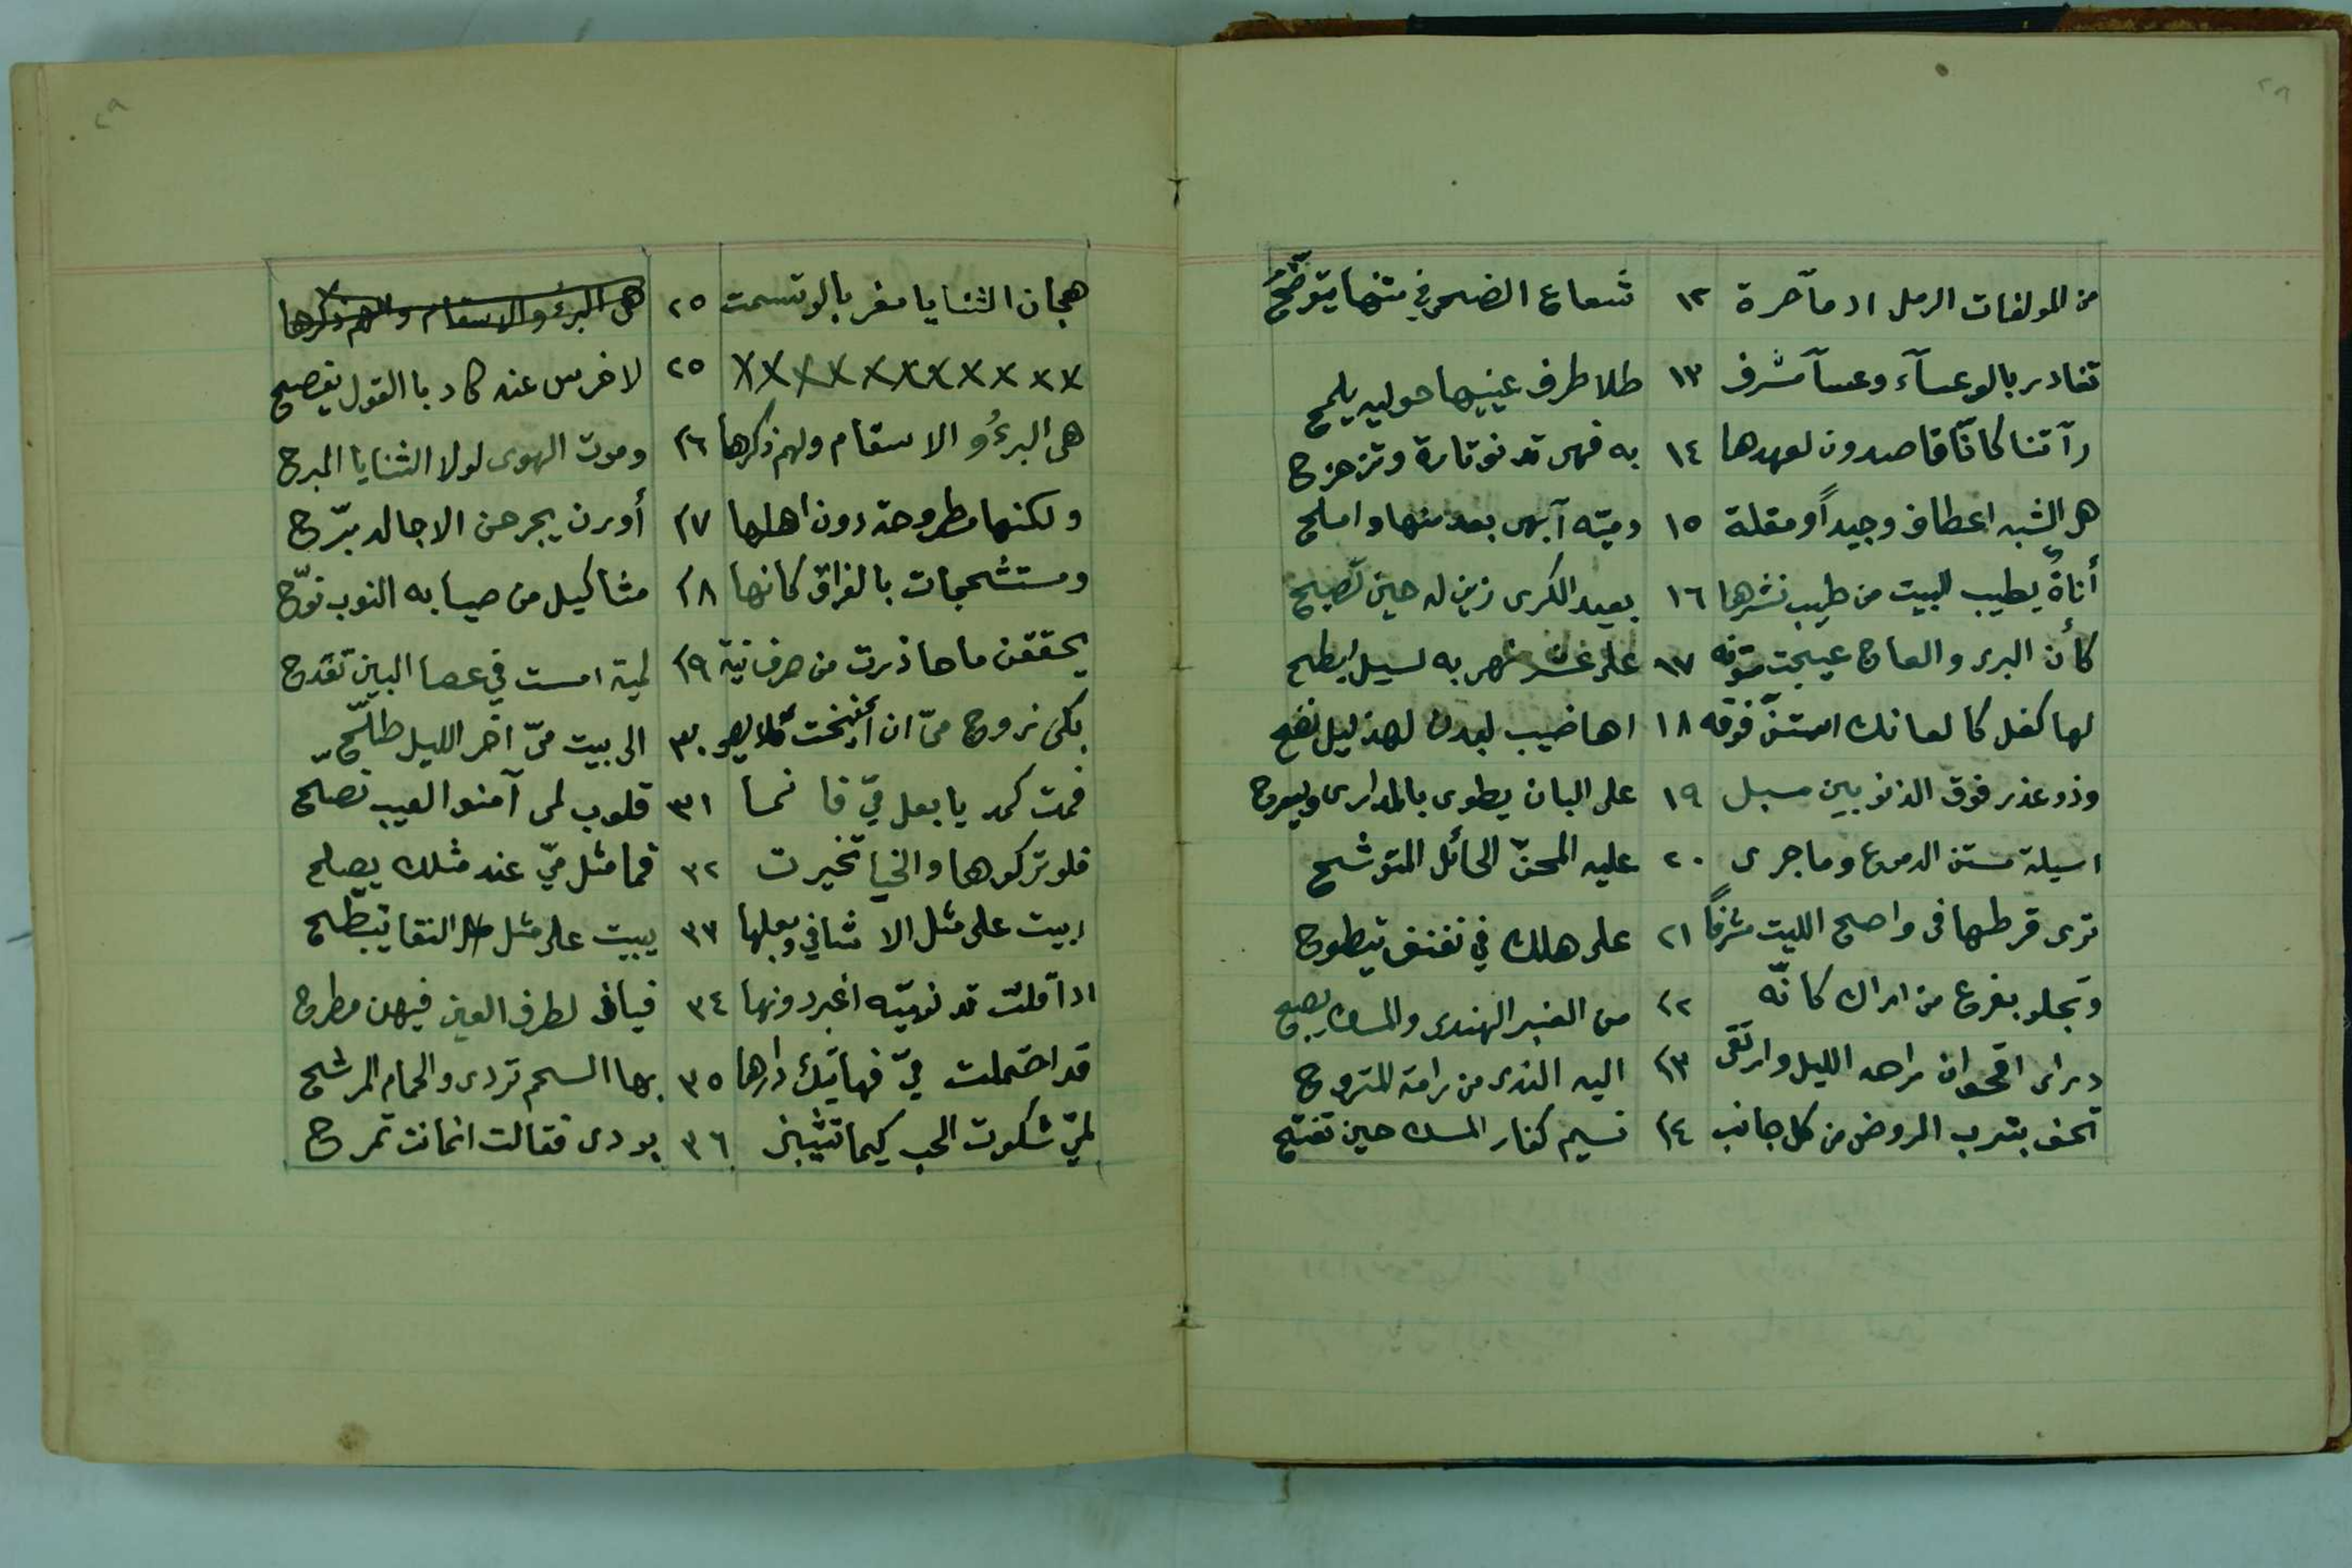 ٢٨
من المولفات الرمل ادمآحرة ١٢ شعاع الضحى في متنها يتوضّحُ
تغادر بالوعسآء وعسآ مشرف ١٣ طلا طرف عينيها حوليه يلمح
رآتنا كانّا قاصدون لعهدها ١٤ به فهى تدنو تارة وتزحزح
هى الشبه اعطافا وجيداً ومقلة ١٥ وميّه آبهى بعد منها واملح
أناةٌ يطيب البيت من طيب نشرها ١٦ بعيد الكرى زين له حين تصبح
كأن البرى والعاج عيجت متونه ١٧ على عشر نهى به لسيل ابطح
لها كفل كالعانك استنّ فوقه ١٨ اهاضيب لبدن لهذليل نضح
وذو عذر فوق الذنوبين مسبل ١٩ على البان يطوى بالمدارى ويسرح
اسيلة مستن الدموع وما جرى ٢٠ عليه المحنّ الحائل المتوشح
ترى قرطها فى واضح الليت مشرفاً ٢١ على هلك في نفنف يتطوح
وتجلو بفرع من اراك كانّه ٢٢ من العنبر الهندى والمسك يصبح
درى اقحوان راحه الليل وارتقى ٢٣ اليه الندى من رامة المتروح
تحف بترب الروض من كل جانب ٢٤ نسيم كفار المسك حين تفتح
٢٩
هجان الثنايا مغربا لو تبسمت ٢٥ هى البرء والاسقام والهم ذكرها
xxxxxxxxxxx ٢٥ لاخرس عنه كاد باالقول يفصح
هى البرءُ و الاسقام ولهم ذكرها ٢٦ وموت الهوى لولا الثنايا المبرح
ولكنها مطروحة دون اهلها ٢٧ أورن يجرحن الاجالد برّح
ومستشحجات بالفراق كانها ٢٨ مثاكيل من صيابه النوب نوّح
يحققن ما حاذرت من صرف نية ٢٩ لمية امست في عصا البين تقدح
بكى زوج ميّ ان أنيخت قلايص ٣٠ الى بيت ميّ آخر الليل طلّح
فمت كمد يا بعل ميّ فا نما ٣١ قلوب لمى آمنو العيب نصلح
فلو تركوها والخيا تخيرت ٣٢ فما مثل ميّ عند مثلك يصلح
ابيت على مثل الاشافي وبعلها ٣٣ يبيت على مثل النقا يتبطّح
اداقلت تدنوميّه اغبر دونها ٣٤ فيافى لطرف العين فيهن مطرح
قد احتملت ميّ فهاتيك دارها ٣٥ بها السحم تردى والحمام المرشح
لميّ شكوت الحب كيما تثيبنى ٣٦ بودى فقالت انمانت تمرح